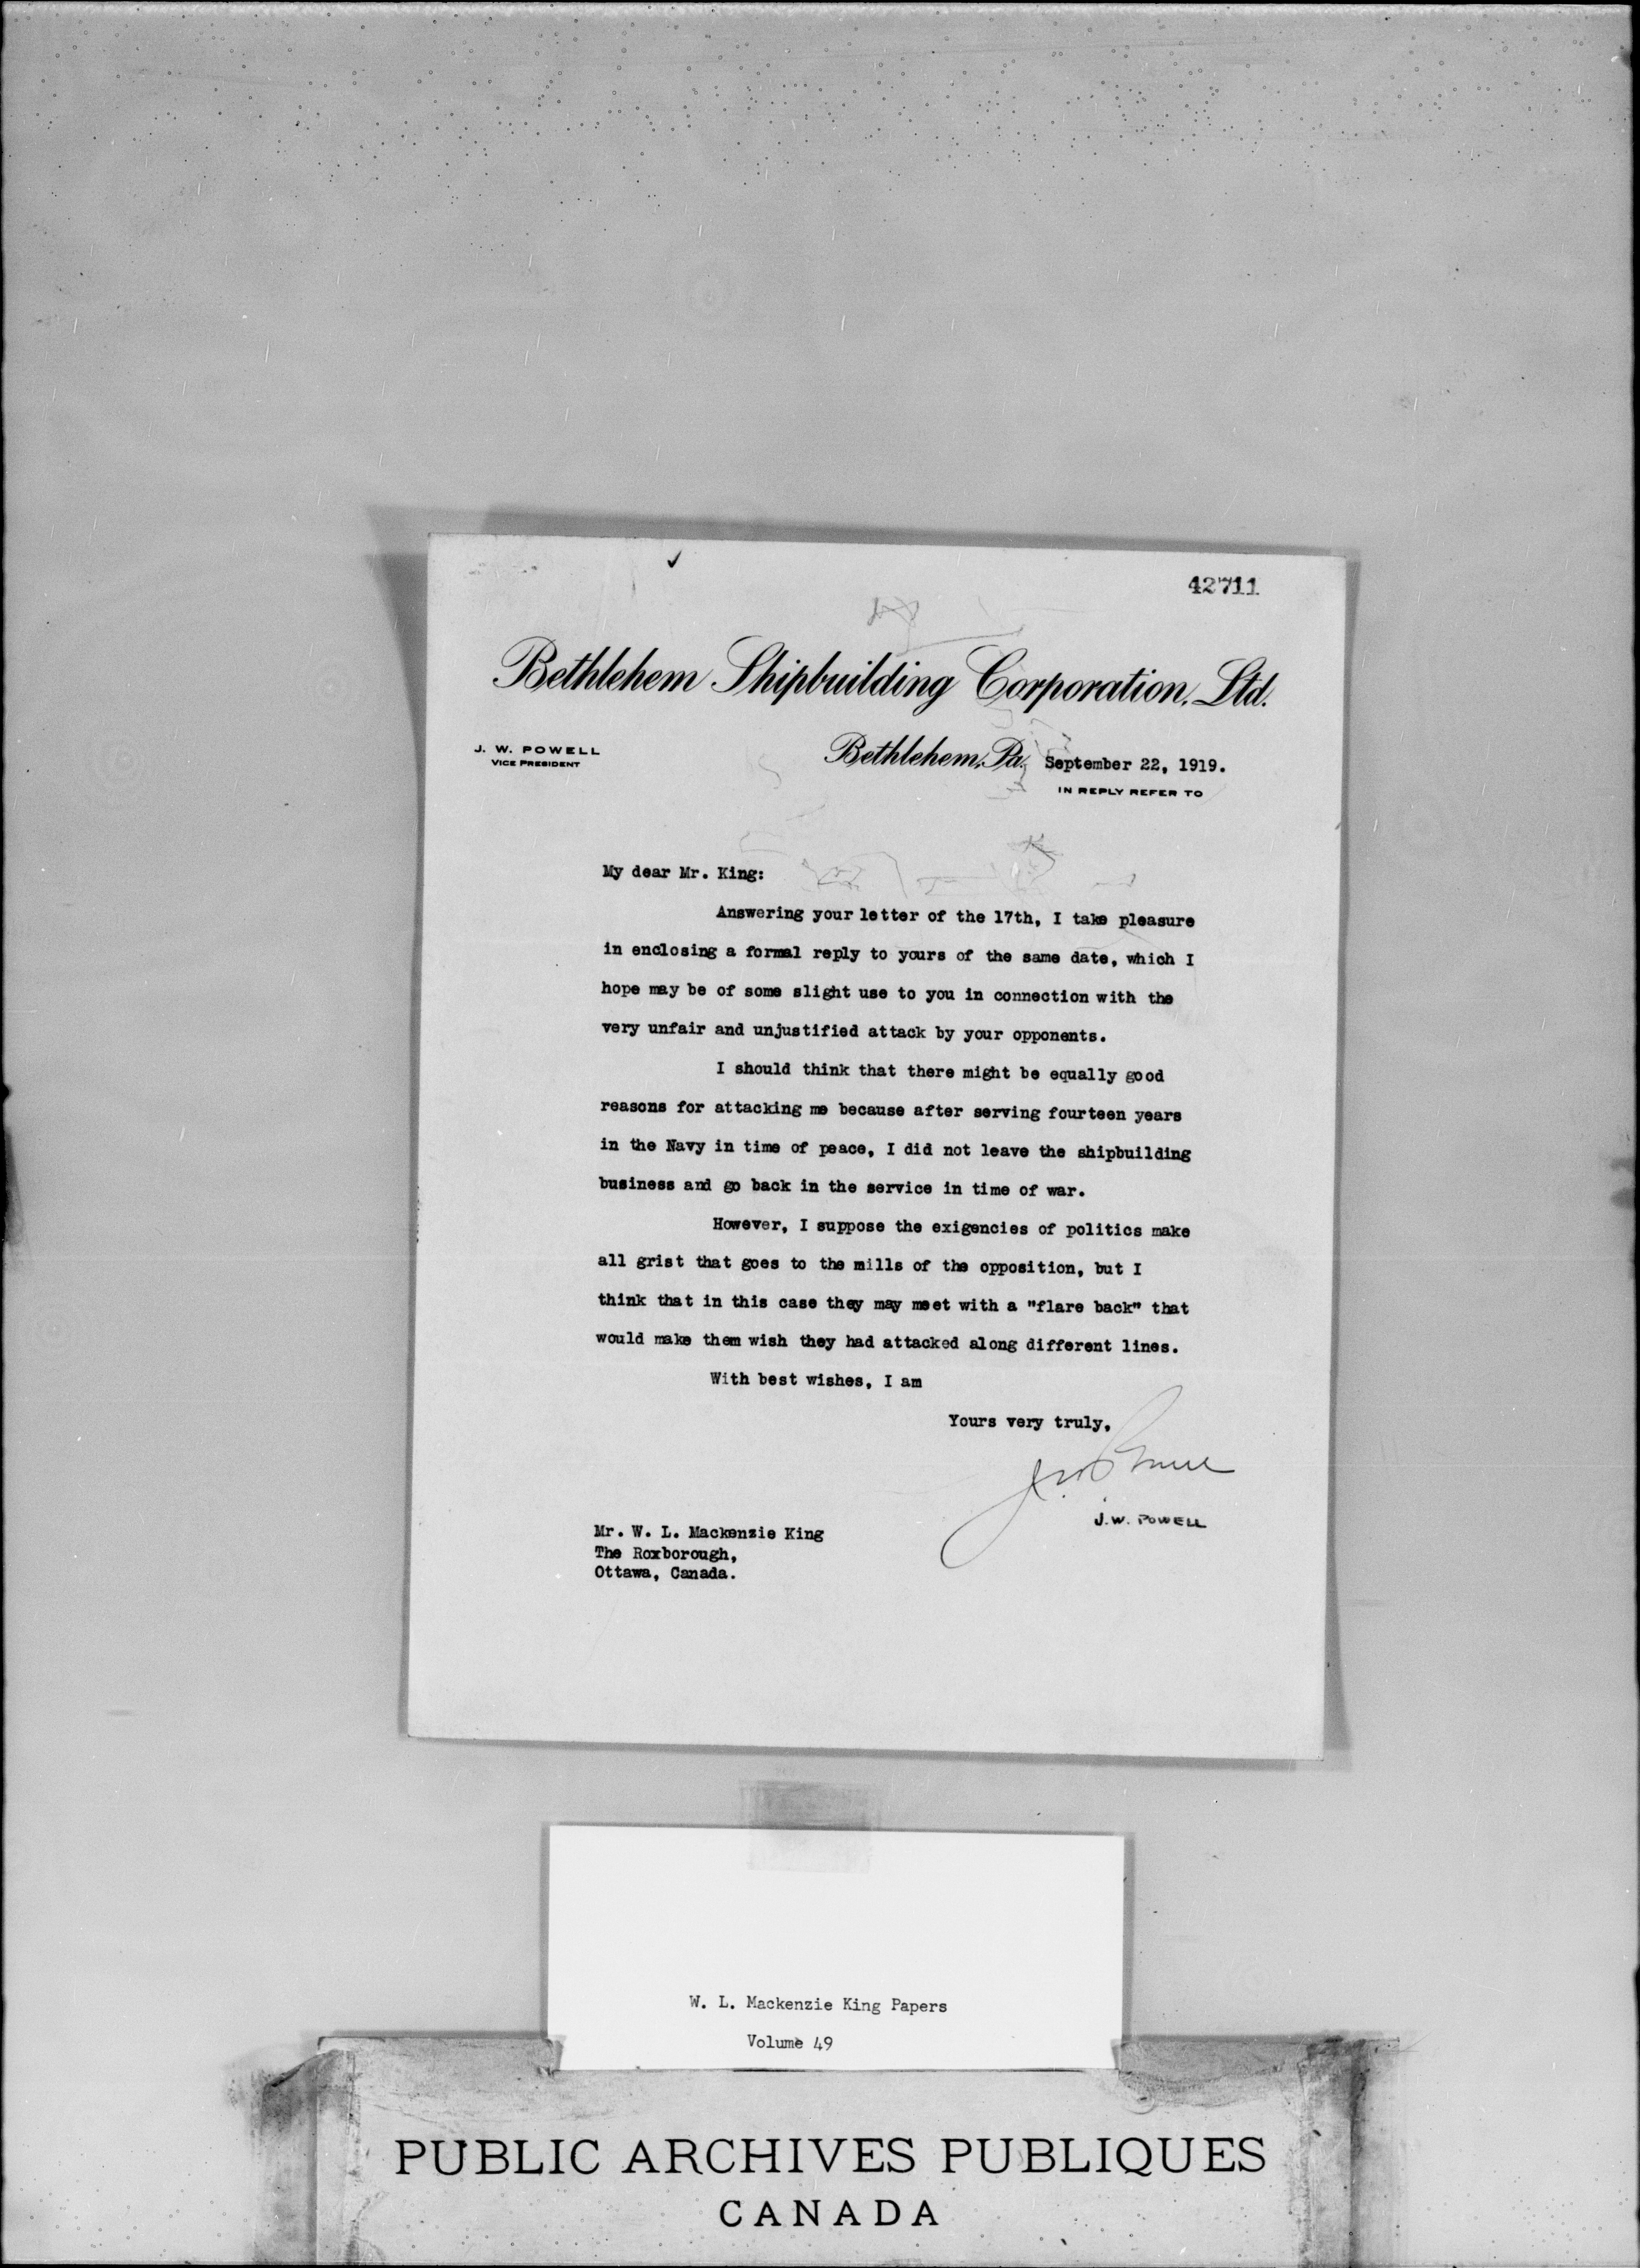 42711
Bethlehem Shipbuilding Corporation, Ltd.
J. W. POWELL
VICE PRESIDENT
Bethlehem, Pa. September 22, 1919.
IN REPLY REFER TO
My dear Mr. King:
Answering your letter of the 17th, I take pleasure
in enclosing a formal reply to yours of the same date, which I
hope may be of some slight use to you in connection with the
very unfair and unjustified attack by your opponents.
I should think that there might be equally good
reasons for attacking me because after serving fourteen years
in the Navy in time of peace, I did not leave the shipbuilding
business and go back in the service in time of war.
However, I suppose the exigencies of politics make
all grist that goes to the mills of the opposition, but I
think that in this case they may meet with a "flare back" that
would make them wish they had attacked along different lines.
With best wishes, I am
Yours very truly,
J.W. Powell
J.W. POWELL
Mr. W. L. Mackenzie King
The Roxborough,
Ottawa, Canada.
W. L. Mackenzie King Papers
Volume 49
PUBLIC ARCHIVES PUBLIQUES
CANADA